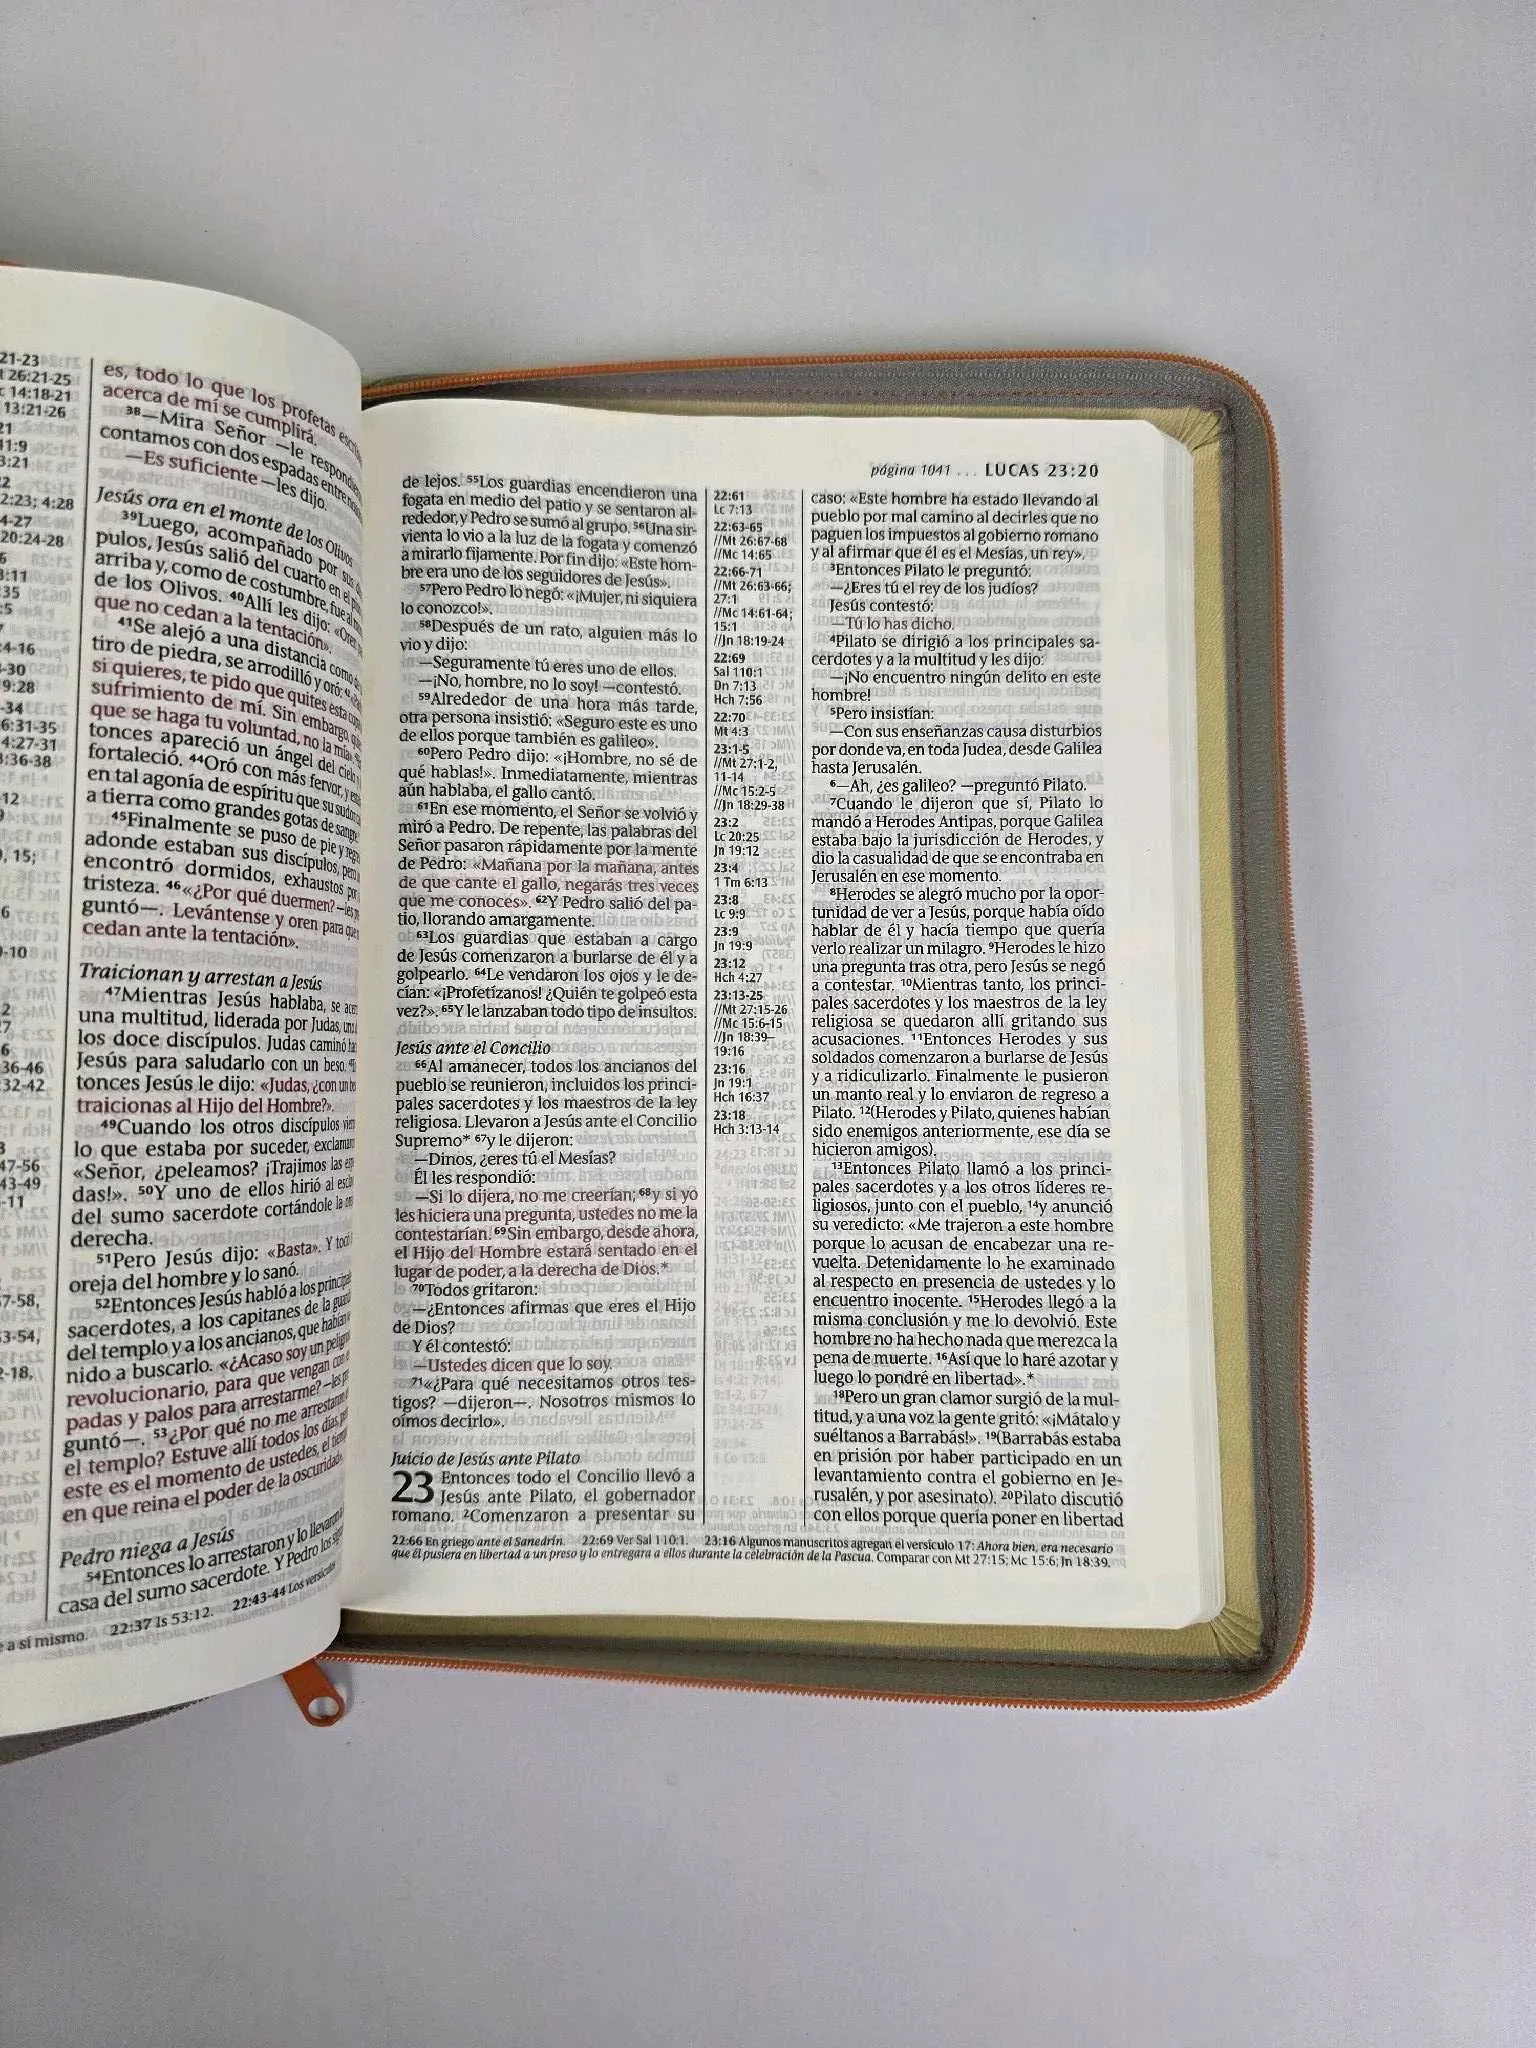 21-23
26:21-25
14:18-21
13:21-26
21
11:9
3:21
22
2:23; 4:28
4-27
20:24-28
6
3:11
35
:5
7
4-16
-30
9:28
-34
6:31-35
4:27-31
3:36-38
12
9
, 15;
6
-10
2
27
6
36-46
32-42
3
47-56
43-49
-11
57-58,
53-54,
2-18,
es, todo lo que los profetas
acerca de mí se cumplirá.
38—Mira Señor —le respondieron
contamos con dos espadas entre
—Es suficiente —les dijo.
Jesús ora en el monte de los Olivos
39Luego, acompañado por sus
pulos, Jesús salió del cuarto en el
arriba y, como de costumbre, fue al
de los Olivos. 40Allí les dijo: «Oren
que no cedan a la tentación».
41Se alejó a una distancia como de
tiro de piedra, se arrodilló y oró:
si quieres, te pido que quites esta copa
sufrimiento de mí. Sin embargo,
que se haga tu voluntad, no la mía».
tonces apareció un ángel del cielo
fortaleció. 44Oró con más fervor, y
en tal agonía de espíritu que su sudor
a tierra como grandes gotas de sangre
45Finalmente se puso de pie y
adonde estaban sus discípulos,
encontró dormidos, exhaustos por
tristeza. 46«¿Por qué duermen? —les
guntó—. Levántense y oren para que
cedan ante la tentación».
Traicionan y arrestan a Jesús
47Mientras Jesús hablaba, se
una multitud, liderada por Judas,
los doce discípulos. Judas caminó
Jesús para saludarlo con un beso.
tonces Jesús le dijo: «Judas, ¿con un
traicionas al Hijo del Hombre?».
49Cuando los otros discípulos
lo que estaba por suceder,
«Señor, ¿peleamos? ¡Trajimos las
das!». 50Y uno de ellos hirió al
del sumo sacerdote cortándole la
derecha.
51Pero Jesús dijo: «Basta». Y
oreja del hombre y lo sanó.
52Entonces Jesús habló a los
sacerdotes, a los capitanes de la
del templo y a los ancianos, que habían
nido a buscarlo. «¿Acaso soy un
revolucionario, para que vengan con
padas y palos para arrestarme? —les
guntó—. 53¿Por qué no me arrestaron
el templo? Estuve allí todos los días,
este es el momento de ustedes, el
en que reina el poder de la oscuridad».
Pedro niega a Jesús
54Entonces lo arrestaron y lo llevaron
casa del sumo sacerdote. Y Pedro los
a sí mismo. 22:37 Is 53:12. 22:43-44 Los versículos
página 1041 ... LUCAS 23:20
de lejos. 55Los guardias encendieron una
fogata en medio del patio y se sentaron al-
rededor, y Pedro se sumó al grupo. 56Una sir-
vienta lo vio a la luz de la fogata y comenzó
a mirarlo fijamente. Por fin dijo: «Este hom-
bre era uno de los seguidores de Jesús».
57Pero Pedro lo negó: «¡Mujer, ni siquiera
lo conozco!».
58Después de un rato, alguien más lo
vio y dijo:
—Seguramente tú eres uno de ellos.
—¡No, hombre, no lo soy! —contestó.
59Alrededor de una hora más tarde,
otra persona insistió: «Seguro este es uno
de ellos porque también es galileo».
60Pero Pedro dijo: «¡Hombre, no sé de
qué hablas!». Inmediatamente, mientras
aún hablaba, el gallo cantó.
61En ese momento, el Señor se volvió y
miró a Pedro. De repente, las palabras del
Señor pasaron rápidamente por la mente
de Pedro: «Mañana por la mañana, antes
de que cante el gallo, negarás tres veces
que me conoces». 62Y Pedro salió del pa-
tio, llorando amargamente.
63Los guardias que estaban a cargo
de Jesús comenzaron a burlarse de él y a
golpearlo. 64Le vendaron los ojos y le de-
cían: «¡Profetízanos! ¿Quién te golpeó esta
vez?». 65Y le lanzaban todo tipo de insultos.
Jesús ante el Concilio
66Al amanecer, todos los ancianos del
pueblo se reunieron, incluidos los princi-
pales sacerdotes y los maestros de la ley
religiosa. Llevaron a Jesús ante el Concilio
Supremo* 67y le dijeron:
—Dinos, ¿eres tú el Mesías?
Él les respondió:
—Si lo dijera, no me creerían; 68y si yo
les hiciera una pregunta, ustedes no me la
contestarían. 69Sin embargo, desde ahora,
el Hijo del Hombre estará sentado en el
lugar de poder, a la derecha de Dios.*
70Todos gritaron:
—¿Entonces afirmas que eres el Hijo
de Dios?
Y él contestó:
—Ustedes dicen que lo soy.
71«¿Para qué necesitamos otros tes-
tigos? —dijeron—. Nosotros mismos lo
oímos decirlo».
Juicio de Jesús ante Pilato
23 Entonces todo el Concilio llevó a
Jesús ante Pilato, el gobernador
romano. 2Comenzaron a presentar su
22:61
Lc 7:13
22:63-65
//Mt 26:67-68
//Mc 14:65
22:66-71
//Mt 26:63-66;
27:1
//Mc 14:61-64;
15:1
//Jn 18:19-24
22:69
Sal 110:1
Dn 7:13
Hch 7:56
22:70
Mt 4:3
23:1-5
//Mt 27:1-2,
11-14
//Mc 15:2-5
//Jn 18:29-38
23:2
Lc 20:25
Jn 19:12
23:4
1 Tm 6:13
23:8
Lc 9:9
23:9
Jn 19:9
23:12
Hch 4:27
23:13-25
//Mt 27:15-26
//Mc 15:6-15
//Jn 18:39–
19:16
23:16
Jn 19:1
Hch 16:37
23:18
Hch 3:13-14
caso: «Este hombre ha estado llevando al
pueblo por mal camino al decirles que no
paguen los impuestos al gobierno romano
y al afirmar que él es el Mesías, un rey».
3Entonces Pilato le preguntó:
—¿Eres tú el rey de los judíos?
Jesús contestó:
—Tú lo has dicho.
4Pilato se dirigió a los principales sa-
cerdotes y a la multitud y les dijo:
—¡No encuentro ningún delito en este
hombre!
5Pero insistían:
—Con sus enseñanzas causa disturbios
por donde va, en toda Judea, desde Galilea
hasta Jerusalén.
6—Ah, ¿es galileo? —preguntó Pilato.
7Cuando le dijeron que sí, Pilato lo
mandó a Herodes Antipas, porque Galilea
estaba bajo la jurisdicción de Herodes, y
dio la casualidad de que se encontraba en
Jerusalén en ese momento.
8Herodes se alegró mucho por la opor-
tunidad de ver a Jesús, porque había oído
hablar de él y hacía tiempo que quería
verlo realizar un milagro. 9Herodes le hizo
una pregunta tras otra, pero Jesús se negó
a contestar. 10Mientras tanto, los princi-
pales sacerdotes y los maestros de la ley
religiosa se quedaron allí gritando sus
acusaciones. 11Entonces Herodes y sus
soldados comenzaron a burlarse de Jesús
y a ridiculizarlo. Finalmente le pusieron
un manto real y lo enviaron de regreso a
Pilato. 12(Herodes y Pilato, quienes habían
sido enemigos anteriormente, ese día se
hicieron amigos).
13Entonces Pilato llamó a los princi-
pales sacerdotes y a los otros líderes re-
ligiosos, junto con el pueblo, 14y anunció
su veredicto: «Me trajeron a este hombre
porque lo acusan de encabezar una re-
vuelta. Detenidamente lo he examinado
al respecto en presencia de ustedes y lo
encuentro inocente. 15Herodes llegó a la
misma conclusión y me lo devolvió. Este
hombre no ha hecho nada que merezca la
pena de muerte. 16Así que lo haré azotar y
luego lo pondré en libertad».*
18Pero un gran clamor surgió de la mul-
titud, y a una voz la gente gritó: «¡Mátalo y
suéltanos a Barrabás!». 19(Barrabás estaba
en prisión por haber participado en un
levantamiento contra el gobierno en Je-
rusalén, y por asesinato). 20Pilato discutió
con ellos porque quería poner en libertad
22:66 En griego ante el Sanedrín. 22:69 Ver Sal 110:1. 23:16 Algunos manuscritos agregan el versículo 17: Ahora bien, era necesario
que él pusiera en libertad a un preso y lo entregara a ellos durante la celebración de la Pascua. Comparar con Mt 27:15; Mc 15:6; Jn 18:39.